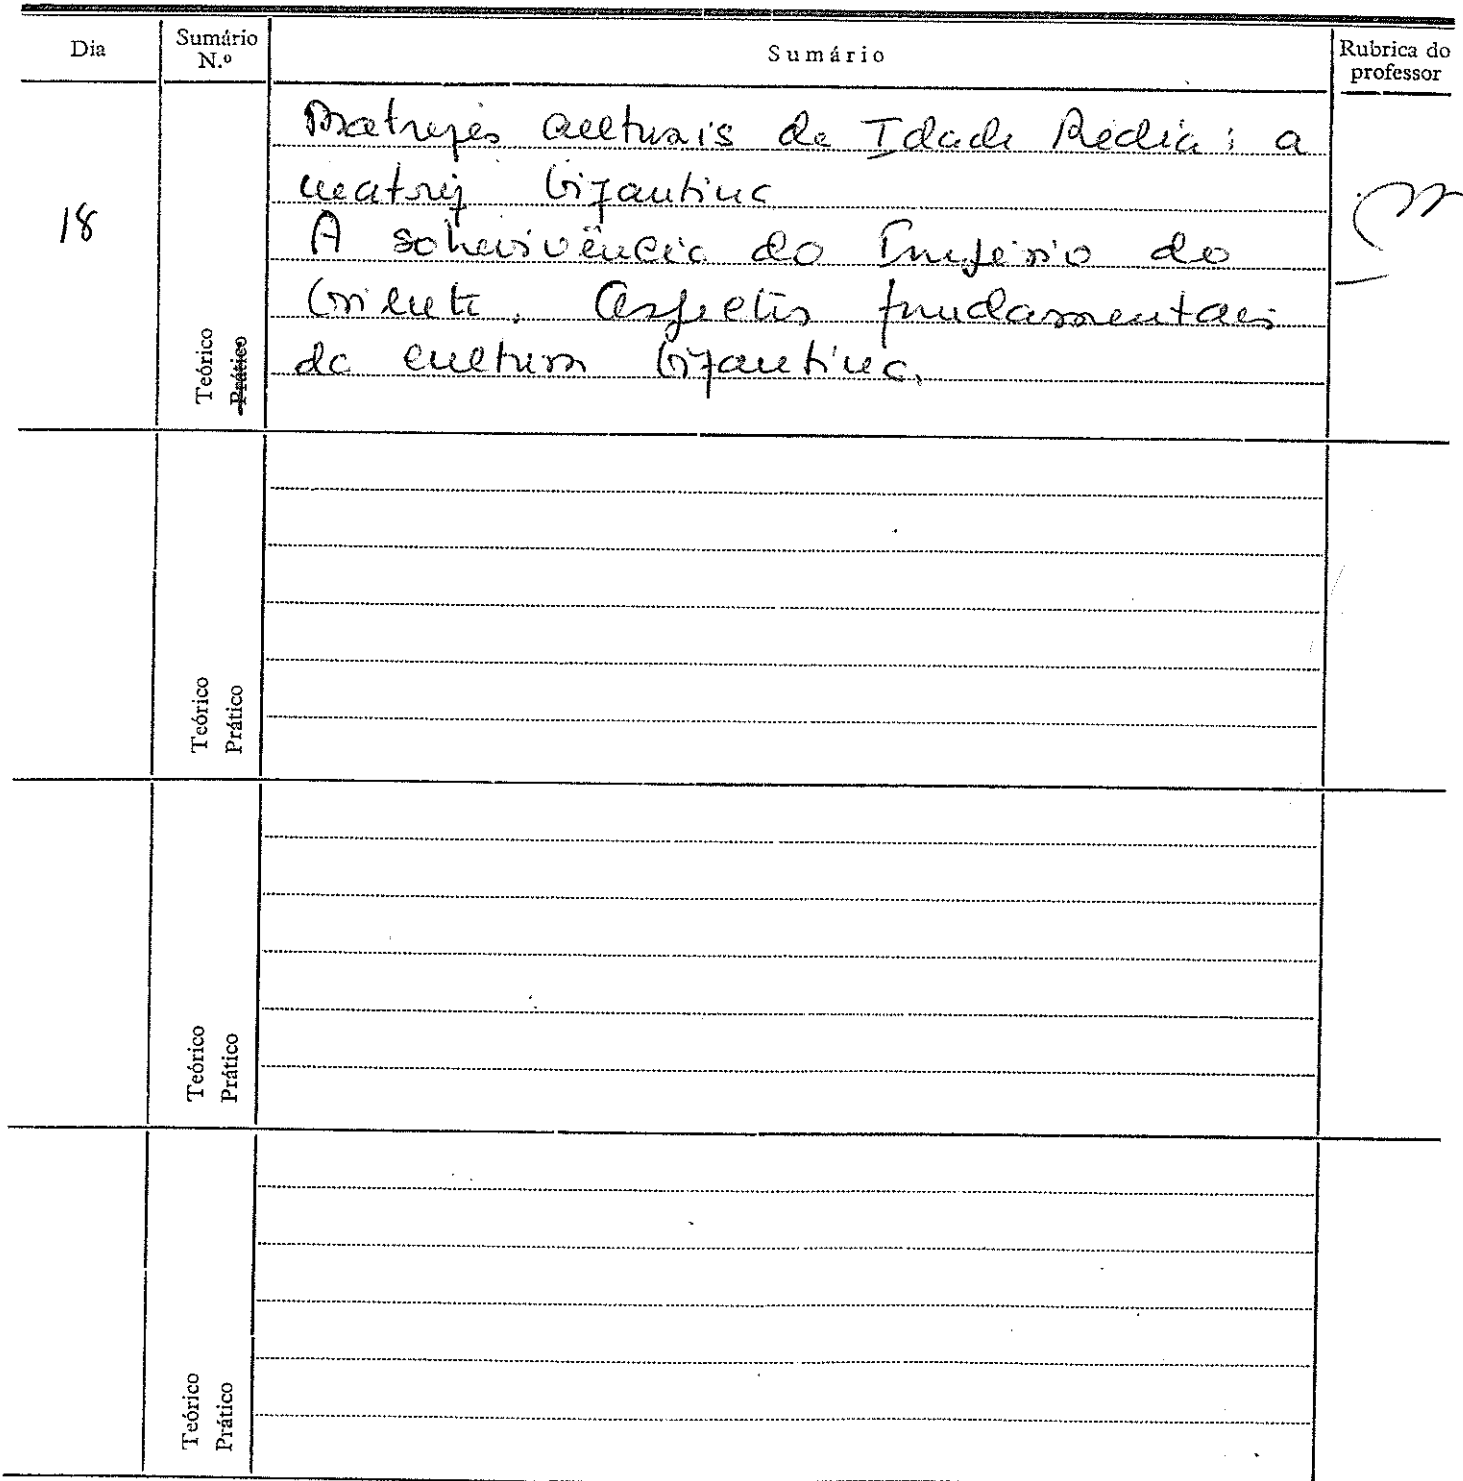 Dia
Sumário N.º
Sumário
Rubrica do professor
18
Teórico
Prático
Matrizes culturais da Idade Média: a
matriz bizantina
A sobrevivência do Império do
Oriente. Aspectos fundamentais
da cultura bizantina.
Teórico
Prático
Teórico
Prático
Teórico
Prático